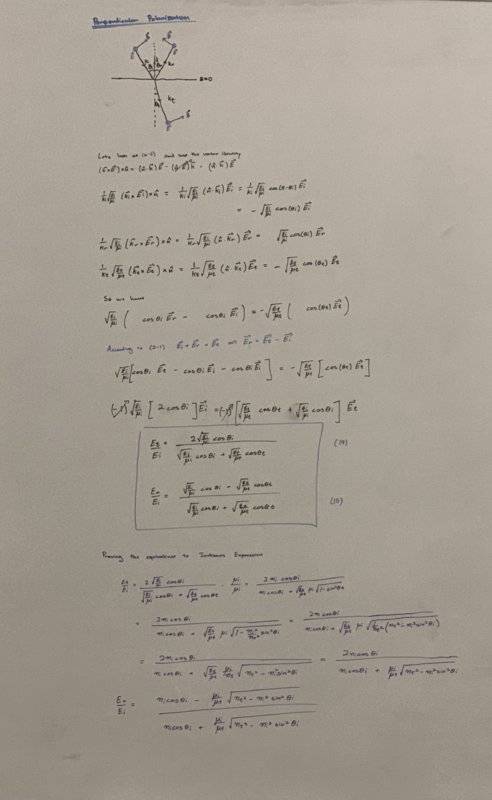 Perpendicular Polarization
z=0
Lets look at (2-2) and use the vector identity
(k⃗×E⃗)×n̂ = (n̂·k⃗)E⃗ - (n̂·E⃗)k⃗ = (n̂·k⃗)E⃗
1/ki √(εi/μi) (k⃗i×E⃗i)×n̂ = 1/ki √(εi/μi) (n̂·k⃗i)E⃗i = 1/ki √(εi/μi) cos(π-θi) E⃗i
= -√(εi/μi) cos(θi) E⃗i
1/kr √(εi/μi) (k⃗r×E⃗r)×n̂ = 1/kr √(εi/μi) (n̂·k⃗r)E⃗r = √(εi/μi) cos(θi) E⃗r
1/kt √(εt/μt) (k⃗t×E⃗t)×n̂ = 1/kt √(εt/μt) (n̂·k⃗t)E⃗t = -√(εt/μt) cos(θt) E⃗t
So we have
√(εi/μi) ( cosθi E⃗r - cosθi E⃗i ) = -√(εt/μt) ( cos(θt) E⃗t )
According to (2-1) E⃗i + E⃗r = E⃗t E⃗r = E⃗t - E⃗i
√(εi/μi) [cosθi E⃗t - cosθi E⃗i - cosθi E⃗i] = -√(εt/μt) [cos(θt) E⃗t]
√(εi/μi) [2cosθi] E⃗i = [√(εt/μt) cosθt + √(εi/μi) cosθi] E⃗t
Et/Ei = 2√(εi/μi) cosθi / (√(εi/μi) cosθi + √(εt/μt) cosθt) (14)
Er/Ei = (√(εi/μi) cosθi - √(εt/μt) cosθt) / (√(εi/μi) cosθi + √(εt/μt) cosθt) (15)
Proving the equivalence to Expression
Et/Ei = 2√(εi/μi) cosθi / (√(εi/μi) cosθi + √(εt/μt) cosθt) · μi/μi = 2ni cosθi / (ni cosθi + √(εt/μt) μi √(1-sin²θt))
= 2ni cosθi / (ni cosθi + √(εt/μt) μi √(1-ni²/nt² sin²θi)) = 2ni cosθi / (ni cosθi + √(εt/μt) μi √(1/nt² (nt²-ni² sin²θi)))
= 2ni cosθi / (ni cosθi + √(εt/μt) μi/nt √(nt²-ni² sin²θi)) = 2ni cosθi / (ni cosθi + μi/μt √(nt²-ni² sin²θi))
Er/Ei = (ni cosθi - μi/μt √(nt²-ni² sin²θi)) / (ni cosθi + μi/μt √(nt²-ni² sin²θi))